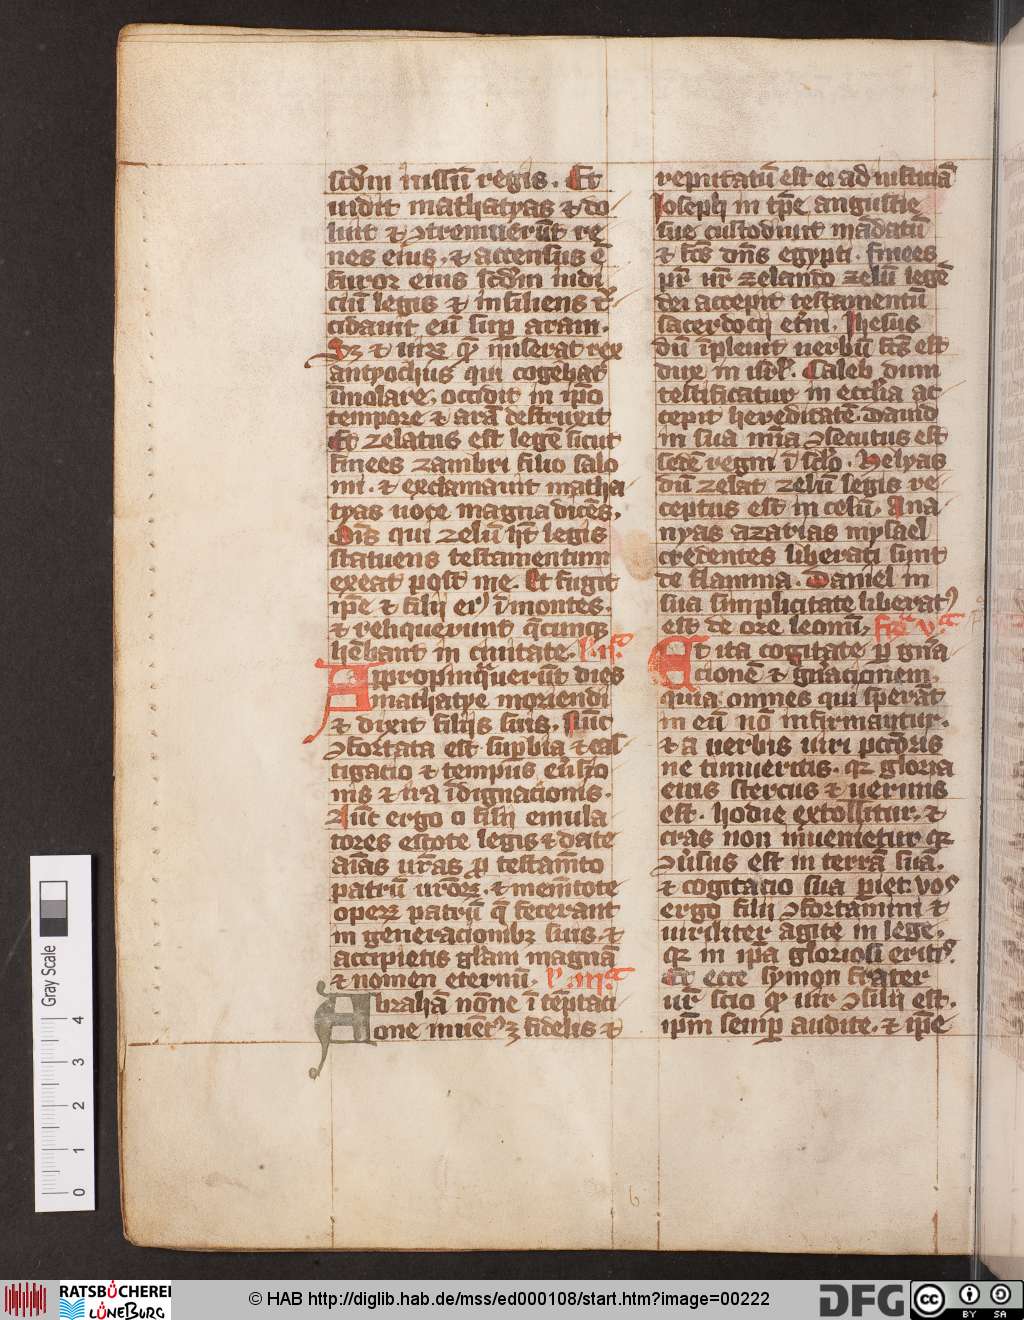 scdm iussū regis. Et
uidit mathatyas & do
luit & ɔtremuerūt re
nes eius. & accensus ē
furor eius scdm iudi
ciū legis & insiliens t͛
cidauit eū sup aram.
Sꝫ & uirū q̄ miserat rex
antyochus qui cogebat
īmolare, occidit in ip̄o
tempore & arā destruxit
Et zelatus est legē sicut
finees zambri filio salo
mi. & exclamauit matha
tyas uoce magna dicēs.
Oīs qui zelū h̄t legis
statuens testamentum
exeat post me. Et fugit
ip̄e & filii ei in montes.
& reliquerunt q̄cunqꝫ
hēbant in ciuitate.
Appropinquerūt dies
mathatye moriendi
& dixit filiis suis. Nūc
ɔfortata est supbia & cas
tigacio & tempus euˀsio
nis & ira īdignacionis.
Nūc ergo o filii emula
tores estote legis & date
aīas ur̄as p̱ testam̄to
patrū ur̄orꝝ. & mem̄tote
operꝝ patrū q̄ fecerant
in generacionibꝫ suis. &
accipietis glām magnā
& nomen eternū. l̓. iii.ᵃ
Abrahā nōne ī tēptaci
one inuētˀ ꝫ fidelis &
reputatū est ei ad iusticiā
Ioseph in tp̄e angustie
sue custodiuit mādatū
& fc̄s dn̄s egypti. finees
pr̄ nr̄ zelando zelū legē
dei accepit testamentū
sacerdocii et̄ni. Ihesus
dū īpleuit uerbū fc̄s est
dux in isrl̄. Caleb dum
testificatur in ecclīa ac
cepit hereditatē. Dauid
in sua mīa ɔsecutus est
sedē regni ī scl̄o. Helyas
dū zelat zelū legis re
ceptus est in celū. Ana
nyas azarias mysael
credentes liberati sunt
de flamma. Daniel in
sua simplicitate liberatˀ
est de ore leonū. fr̄ia v.ᵃ
Et ita cogitate p̱ gn̄a
cionē & gn̄acionem
quia omnes qui sperāt
in eū nō infirmantur.
& a uerbis uiri pcc̄oris
ne timueritis. qꝛ gloria
eius stercus & uermis
est. hodie extollitur. &
cras non inuenietur qꝛ
ɔuˀsus est in terrā suā.
& cogitacio sua p̱iet. vos
ergo filii ɔfortamini &
uiriliter agite in lege.
qꝛ in ip̄a gloriosi eritˀ.
Et ecce symon frater
ur̄ scio q̄ uir ɔsilii est.
ip̄m semp̱ audite. & ip̄e
Gray Scale
0 1 2 3 4
RATSBÜCHEREI
LÜNEBURG
© HAB http://diglib.hab.de/mss/ed000108/start.htm?image=00222
DFG
cc BY SA